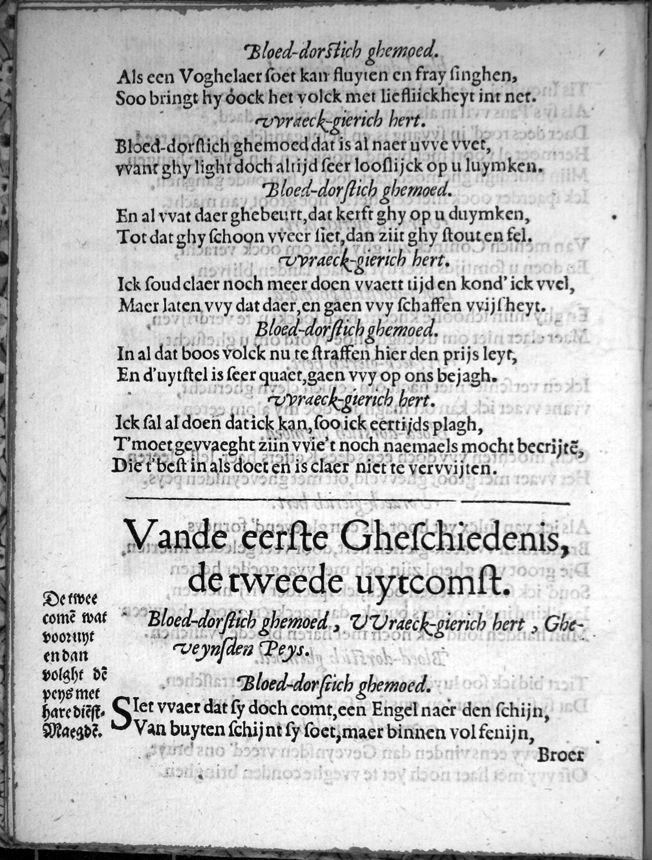 Bloed-dorſtich ghemoed.
Als een Voghelaer ſoet kan fluyten en fray ſinghen,
Soo bringt hy oock het volck met liefliickheyt int net.
VVraeck-gierich hert.
Bloed-dorſtich ghemoed dat is al naer uvve vvet,
vvant ghy light doch altijd ſeer looſlijck op u luymken.
Bloed-dorſtich ghemoed.
En al vvat daer ghebeurt, dat kerft ghy op u duymken,
Tot dat ghy ſchoon vveer ſiet, dan ziit ghy ſtout en fel.
VVraeck-gierich hert.
Ick ſoud claer noch meer doen vvaert tijd en kond' ick vvel,
Maer laten vvy dat daer, en gaen vvy ſchaffen vvijſheyt.
Bloed-dorſtich ghemoed.
In al dat boos volck nu te ſtraffen hier den prijs leyt,
En d'uytſtel is ſeer quaet, gaen vvy op ons bejagh.
VVraeck-gierich hert.
Ick ſal al doen dat ick kan, ſoo ick eertijds plagh,
T'moet gevvaeght ziin vvie't noch naemaels mocht becrijtē,
Die t'beſt in als doet en is claer niet te vervvijten.
Vande eerſte Gheſchiedenis,
de tweede uytcomſt.
De twee
comē wat
vooruyt
en dan
volght dē
peys met
hare dieſt-
Maegdē.
Bloed-dorſtich ghemoed, VVraeck-gierich hert, Ghe-
veynſden Peys.
Bloed-dorſtich ghemoed.
SIet vvaer dat ſy doch comt, een Engel naer den ſchijn,
Van buyten ſchijnt ſy ſoet, maer binnen vol fenijn,
Broer